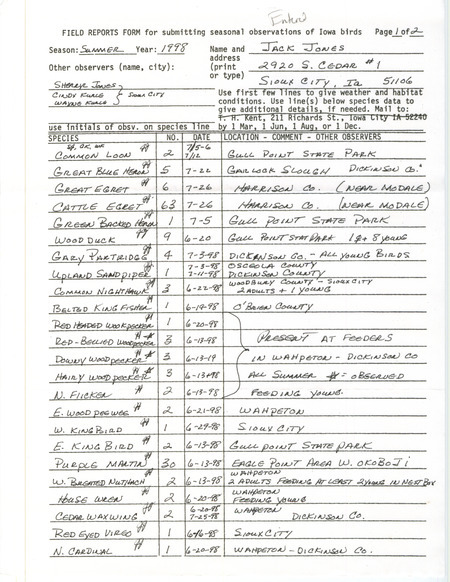 Entered
FIELD REPORTS FORM for submitting seasonal observations of Iowa birds Page 1 of 2
Season: SUMMER Year: 1998 Name and JACK JONES
address
Other observers (name, city): (print 2920 S. CEDAR #1
or type)
SHERYL JONES SIOUX CITY, IA 51106
CINDY KUHLE SIOUX CITY Use first few lines to give weather and habitat
WAYNE KUHLE conditions. Use line(s) below species data to
give additional details, if needed. Mail to:
T. H. Kent, 211 Richards St., Iowa City IA 52240
use initials of obsv. on species line by 1 Mar, 1 Jun, 1 Aug, or 1 Dec.
SPECIES NO. DATE LOCATION - COMMENT - OTHER OBSERVERS
COMMON LOON 2 7/5-6 7/12 GULL POINT STATE PARK
GREAT BLUE HERON 5 7-22 GARLOCK SLOUGH DICKINSON CO.
GREAT EGRET 6 7-26 HARRISON CO. (NEAR MODALE)
CATTLE EGRET 63 7-26 HARRISON CO. (NEAR MODALE)
GREEN BACKED HERON 1 7-5 GULL POINT STATE PARK
WOOD DUCK 9 6-20 GULL POINT STAT PARK 1♀ 8 young
GARY PARTRIDGE 4 7-3-98 DICKINSON CO. - ALL YOUNG BIRDS
UPLAND SANDPIPER 1 7-3-98 OSCEOLA COUNTY
7-11-98 DICKINSON COUNTY
COMMON NIGHTHAWK 3 6-22-98 WOODBURY COUNTY - SIOUX CITY
2 ADULTS + 1 YOUNG
BELTED KINGFISHER 1 6-19-98 O'BRIEN COUNTY
RED HEADED WOODPECKER 1 6-20-98
RED-BELLIED WOODPECKER 3 6-13-98 PRESENT AT FEEDERS
DOWNY WOODPECKER 3 6-13-19 IN WAHPETON - DICKINSON CO
HAIRY WOODPECKER 3 6-13-98 ALL SUMMER # = OBSERVED
N. FLICKER 2 6-13-98 FEEDING YOUNG.
E. WOOD PEEWEE 2 6-21-98 WAHPETON
W. KINGBIRD 1 6-29-98 SIOUX CITY
E. KINGBIRD 2 6-13-98 GULL POINT STATE PARK
PURPLE MARTIN 30 6-13-98 EAGLE POINT AREA W. OKOBOJI
W. BREATED NUTHACH 2 6-13-98 WAHPETON
2 ADULTS FEEDING AT LEAST 2 YOUNG IN NEST BOX
HOUSE WREN 2 6-20-98 WAHPETON
FEEDING YOUNG
CEDAR WAXWING 2 6-20-98 WAHPETON
7-25-98 DICKINSON CO.
RED EYED VIREO 1 SIOUX CITY
N. CARDINAL 1 6-20-98 WAHPETON - DICKINSON CO.